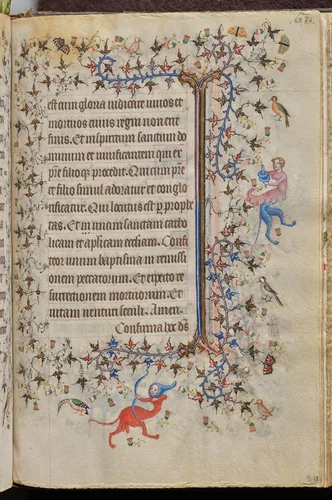 est cum gloria iudicare uiuos et
mortuos cuius regni non erit
finis. Et in spiritum sanctum do
minum et uiuificantem qui ex
pře filioqȝ procedit. Qui cum pře
et filio simul adoratur et conglo
rificatur. Qui locutus est ꝑ prophe
tas. Et in unam sanctam catho
licam et apľicam ecclesiam. Confi
teor unum baptisma in remissi
onem peccatorum. Et expecto re
surrectionem mortuorum. Et
uitam uenturi seculi. Amen.
Confirma hoc ds̄